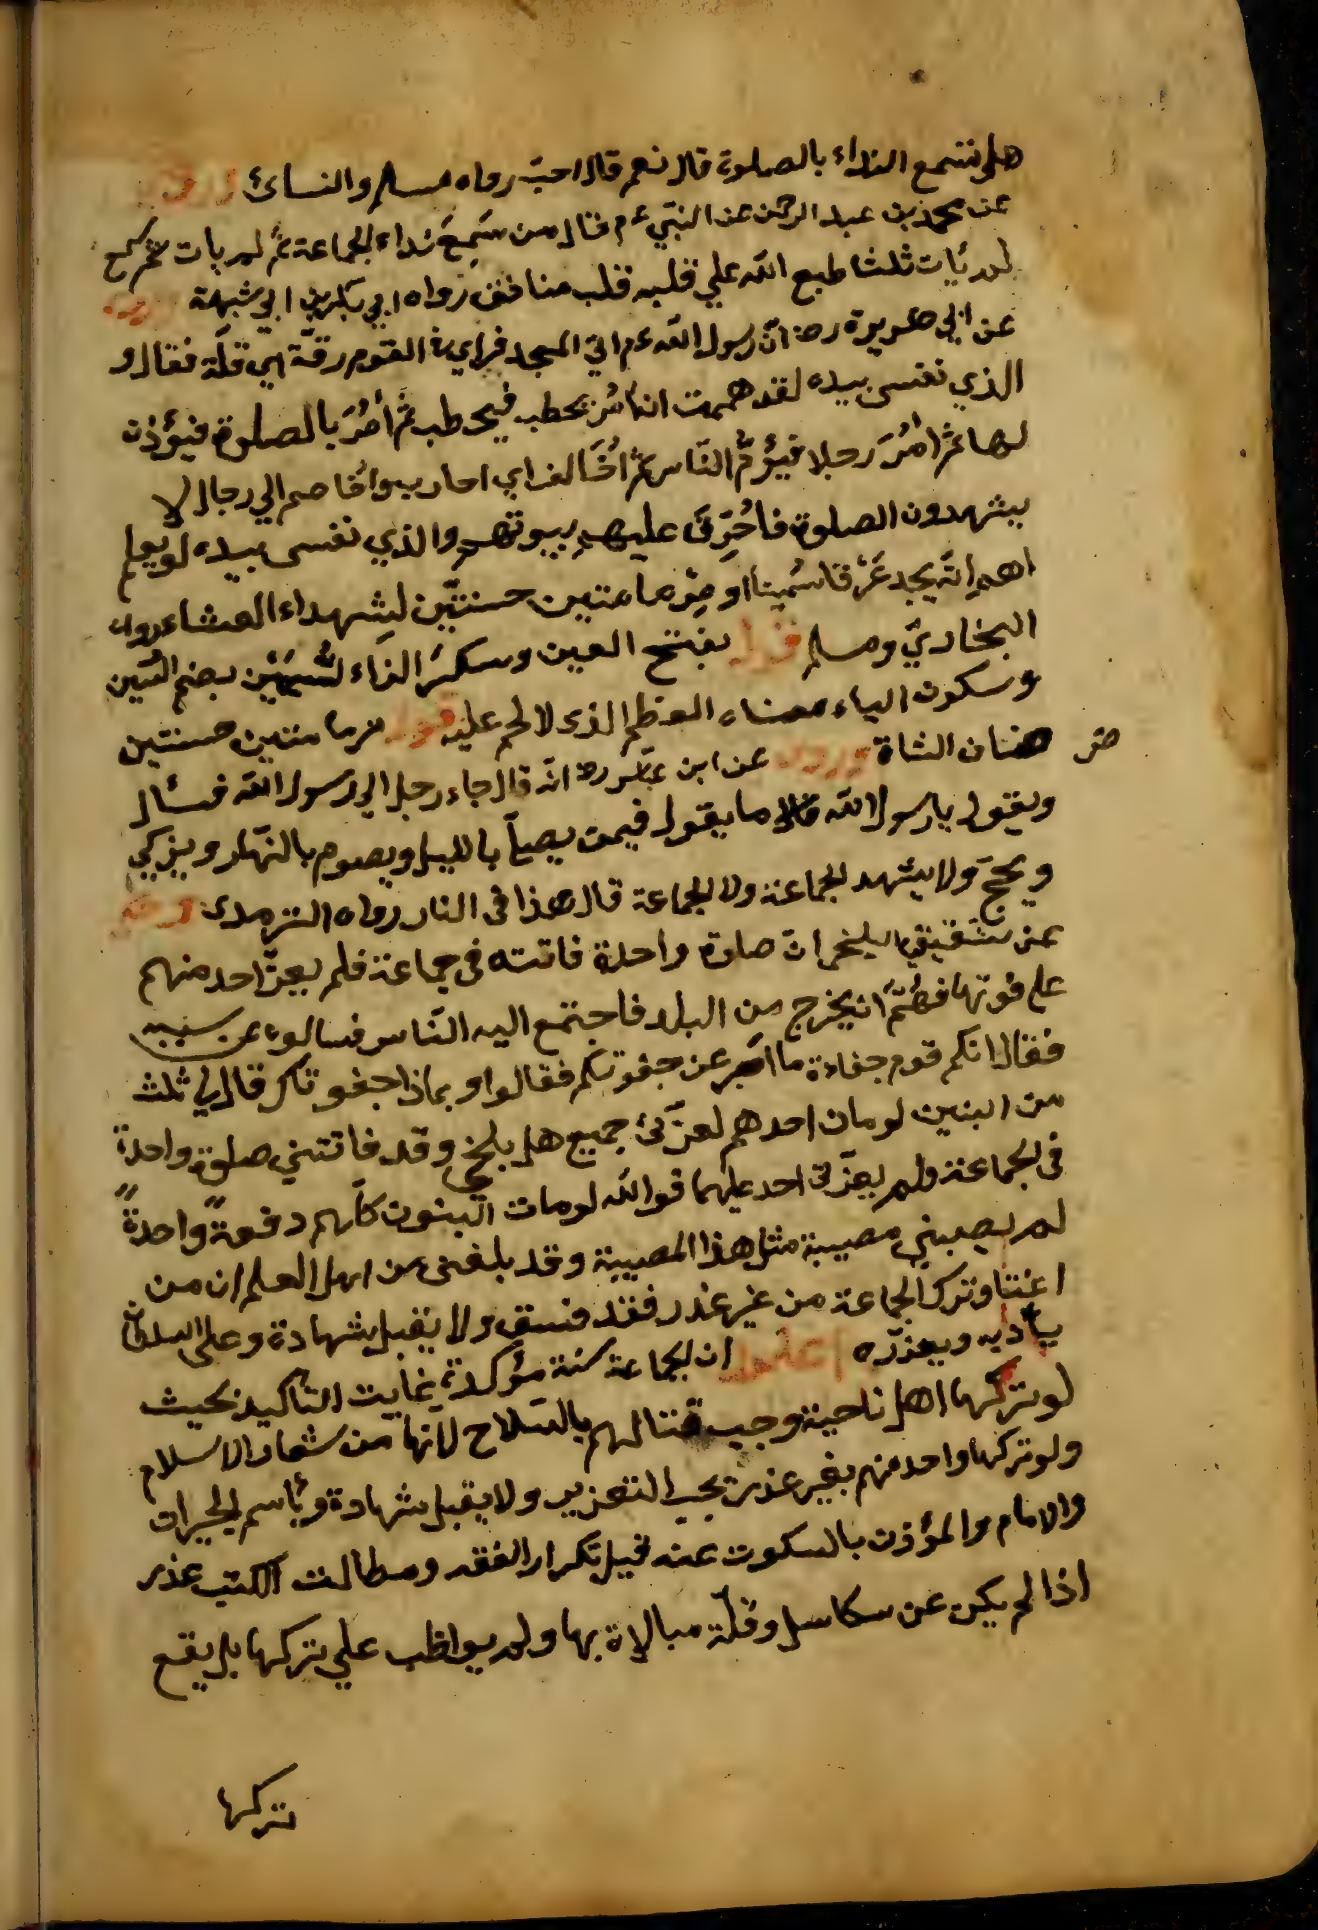 هل تسمع النداء بالصلوة قال نعم قال احبّ رواه مسلم والنسائ وروى
عن محمد بن عبد الرحمن عن النبي عم قال من سَمِعَ نداء الجماعة ثم لم يات ثم سمع
لم يأت ثلثا طبع الله علي قلبه قلب منافق رواه ابي بكر بن ابي شيبة وروى
عن ابي هريرة رض انّ رسول الله عم اتي المسجد فراي في القوم رقّة اي قلّة فقال و
الذي نفسى بيده لقد هممت ان اٰمُرَ بحطب فيحطب ثمّ اٰمُرَ بالصلوة فيؤذن
لها ثمّ اٰمُرَ رجلا فيؤمَّ النّاس ثمّ اُخَالف اي احارب واُخاصم الي رجال لا
يشهدون الصلوة فاُحَرِّقَ عليهم بيوتهم والذي نفسى بيده لو يعلم
احدهم انّه يجد عَرْقا سَمِينا او مِرْماتين حسنتين لشهداء العشاء رواه
البخاريّ ومسلم قوله بفتح العين وسكر الرّاء لسمين بضم السّين
وسكون الياء معناه العظم الذى لا لحم عليه قوله مرماتين حسنتين
هنان الشاة وروى عن ابن عبّاس رض انّه قال جاء رجل الي رسول الله فسأل
ويقول يا رسول الله ما يقول فيمن يصلّ بالليل ويصوم بالنّهار ويزكي
ويحجّ ولا يشهد الجماعة ولا الجماعة قال هذا في النار رواه الترمدى وروى
عن شقيق البلخي ان صلوة واحدة فاتته في جماعة فلم يعزّ احد منهم
علي فوتها فهمَّ ان يخرج من البلد فاجتمع اليه النّاس فسالوه عن سببه
فقال انكم قوم جفاءة ما اصبر عن جفوتكم فقالوا وبماذا جفوناك قال لي ثلث
من البنين لو مات احدهم لعزّنئ جميع اهل بلخي وقد فاتتني صلوة واحدة
في الجماعة ولم يعزّني احد عليها فوالله لو مات البنون كلّهم دفعةً واحدةً
لم يصيبني مصيبة مثل هذا المصيبة وقد بلغنى من اهل العلم ان من
اعتاد ترك الجماعة من غير عذر فقد فسق ولا يقبل شهادة وعلى السلطان
يأدّبه ويعزّره اعلم ان الجماعة سنة مؤكدة في غايت التأكيد بحيث
لو تركها اهل ناحية وجب قتالهم بالسّلاح لانها من شعار الاسلام
ولو تركها واحد منهم بغير عذر يجب التعزير ولا يقبل شهادة ويأسم الجيران
والامام والمؤذن بالسكوت عنه قيل تكرار الفقه ومطالت الكتب عذر
اذا لم يكن عن سكاسل وقلّة مبالاة بها ولم يواظب علي تركها بل يقع
تركها